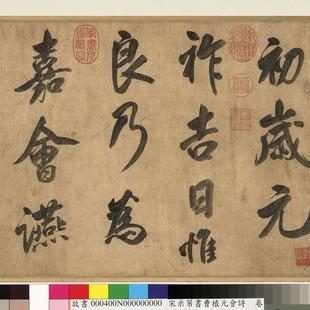 初歲元
祚吉日惟
良乃為
嘉會讌
故書 000400N000000000 宋米芾書曹植元會詩 卷